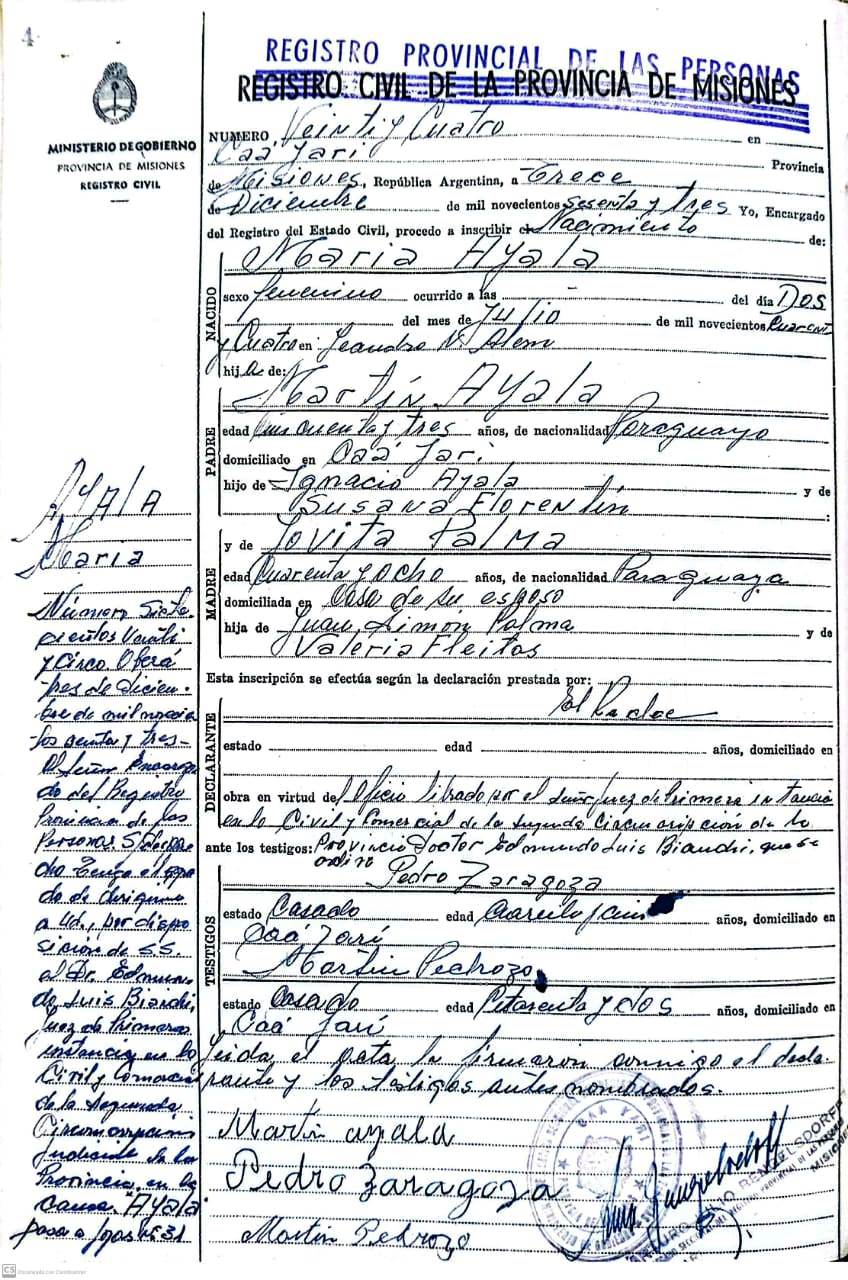 4
REGISTRO PROVINCIAL DE LAS PERSONAS
REGISTRO CIVIL DE LA PROVINCIA DE MISIONES
MINISTERIO DE GOBIERNO
PROVINCIA DE MISIONES
REGISTRO CIVIL
NUMERO Veinti y Cuatro en
Caá Yari Provincia
de Misiones, República Argentina, a Trece
de Diciembre de mil novecientos sesenta y tres Yo, Encargado
del Registro del Estado Civil, procedo a inscribir el Nacimiento de:
NACIDO
Maria Ayala
sexo femenino ocurrido a las - del día Dos
del mes de Julio de mil novecientos Cuarent
y Cuatro en: Leandro N. Alem
hija de:
PADRE
Martín Ayala
edad Cincuenta y tres años, de nacionalidad Paraguayo
domiciliado en Caá Yari
hijo de Ignacio Ayala y de
Susana Florentín :
MADRE
y de Jovita Palma
edad Cuarenta y ocho años, de nacionalidad Paraguaya
domiciliada en Casa de su esposo
hija de Juan Simón Palma y de
Valeria Fleitas
Esta inscripción se efectúa según la declaración prestada por:
DECLARANTE
El Padre
estado edad años, domiciliado en
obra en virtud de Oficio librado por el Señor Juez de Primera instancia
en lo Civil y Comercial de la segunda Circunscripción de la
ante los testigos: Provincia Doctor Edmundo Luis Bianchi, que se
ordina
TESTIGOS
Pedro Zaragoza
estado Casado edad años, domiciliado en
Caá Yarí
Martin Pedrozo
estado Casado edad y dos años, domiciliado en
Caá Yarí
Leida el acta la firmaron conmigo el decla-
rante y los testigos antes nombrados.
Martin ayala
Pedro Zaragoza
Martin Pedrozo
CAA YARI
AYALA
Maria
Número Siete-
cientos Veinti
y Cinco Oberá
tres de Diciem-
bre de mil novecien
tos senta y tres-
El Señor Encarga
do del Registro
Provincia de las
Personas S/despa
cho Tengo el agra
do de dirigirme
a Ud., por dispo
sición de S.S.
el Dr. Edmun-
do Luis Bianchi,
Juez de Primera
instancia en lo
Civil y Comercial
de la Segunda
Circunscripción
Judicial de la
Provincia, en la
causa "Ayala
pasa a fojas 31
CS Escaneado con CamScanner